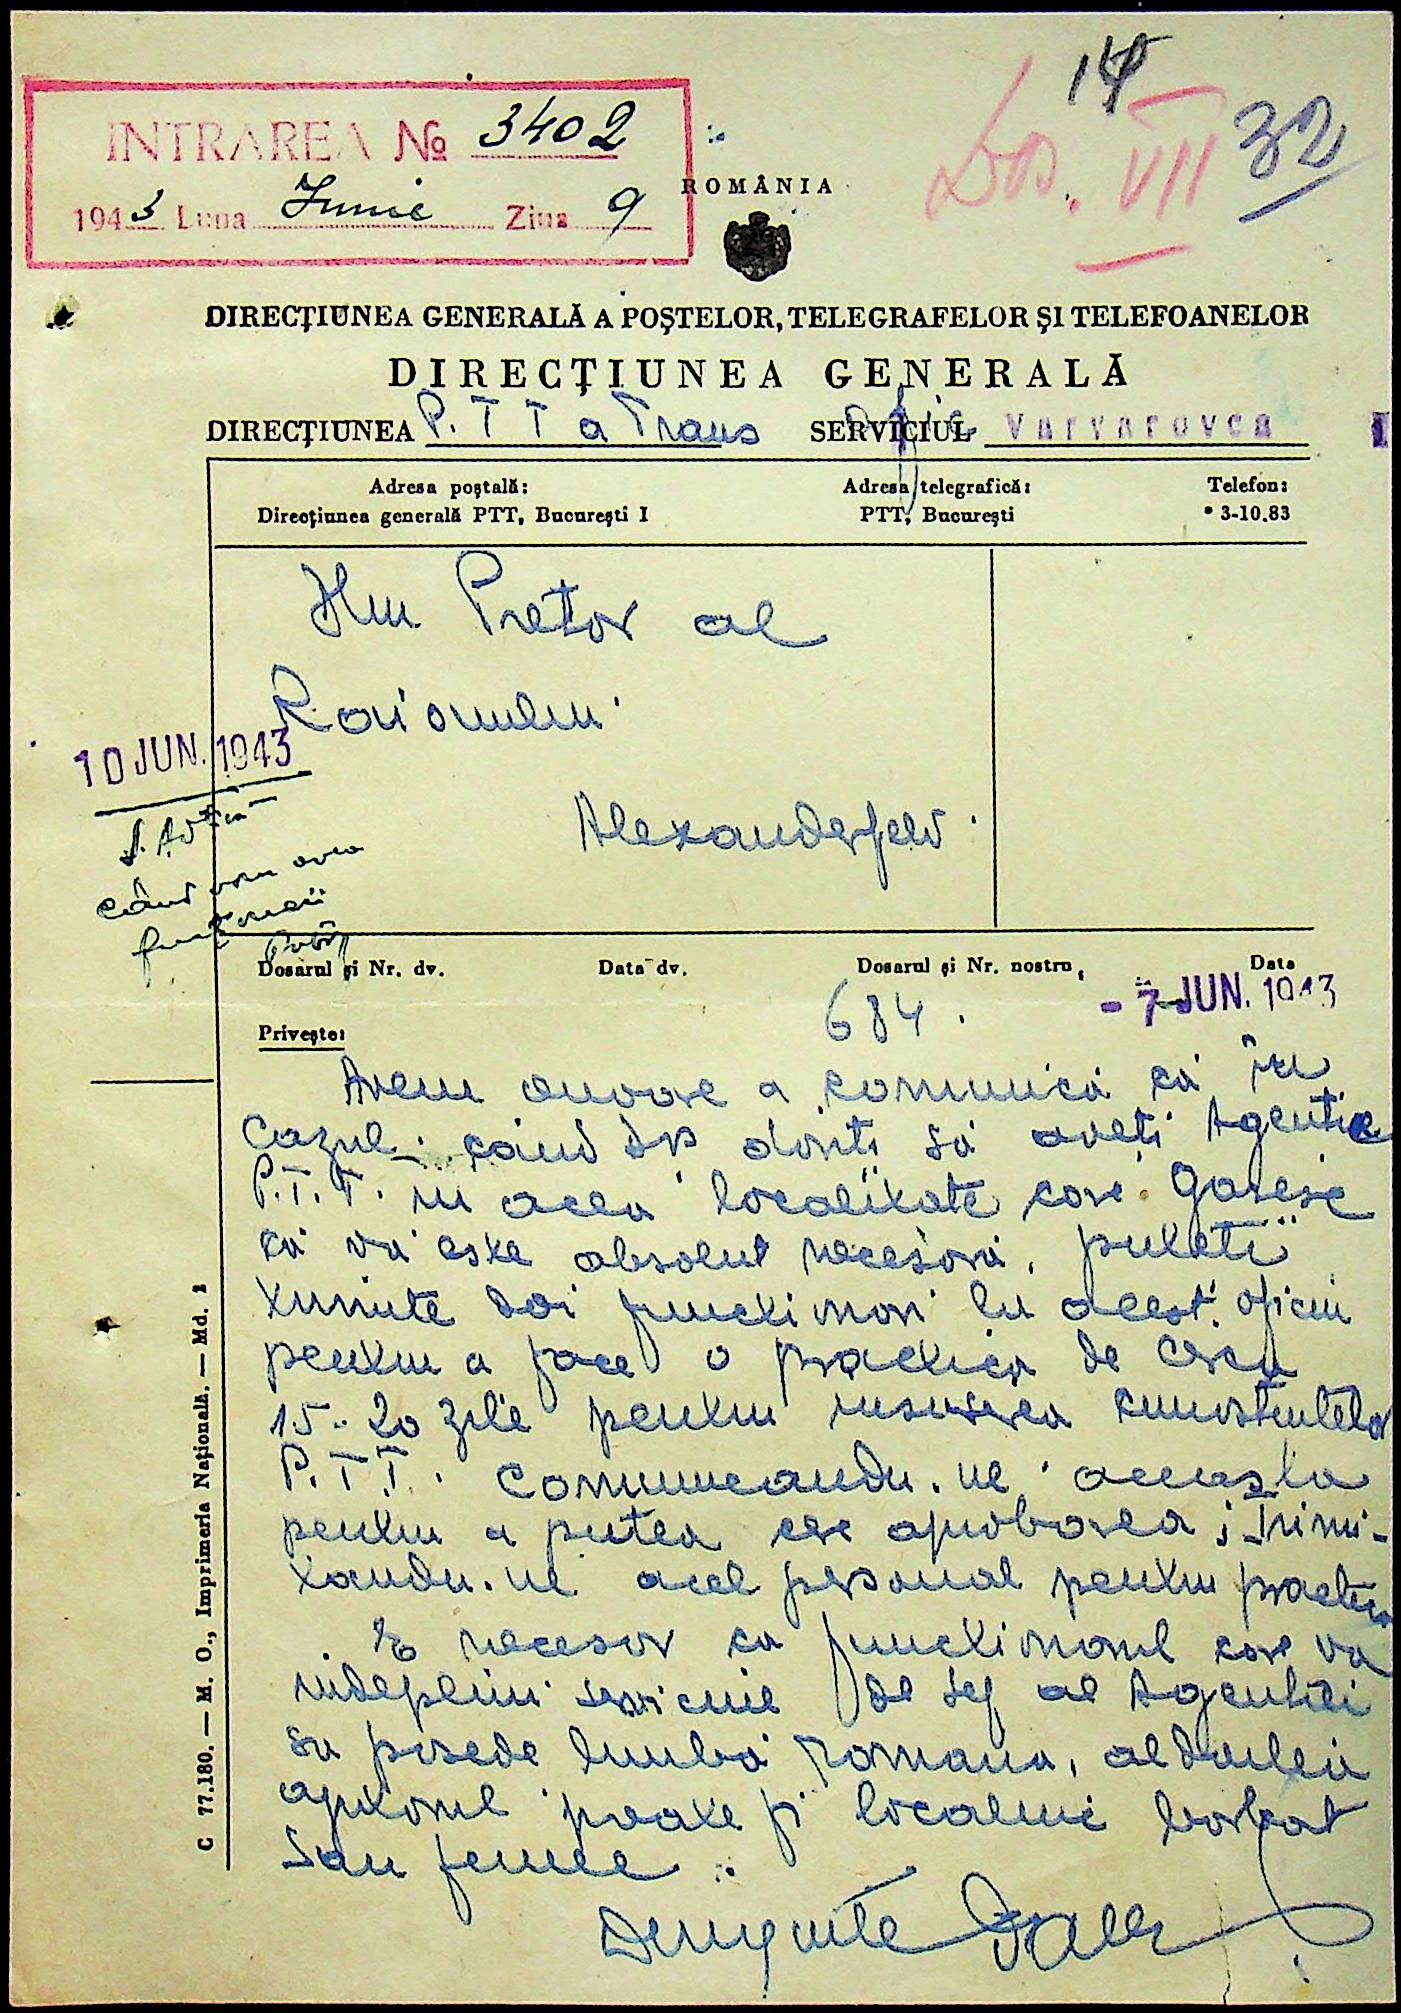 14
INTRAREA № 3402
Dos. VII 32
1943 Luna Iunie Ziua 9
ROMÂNIA
DIRECŢIUNEA GENERALĂ A POŞTELOR, TELEGRAFELOR ŞI TELEFOANELOR
DIRECŢIUNEA GENERALĂ
DIRECŢIUNEA P. T T a Trans SERVICIUL Varvarovca
Adresa poştală: Adresa telegrafică: Telefon:
Direcţiunea generală PTT, Bucureşti I PTT, Bucureşti 3-10.83
Dlui Pretor al
Raionului
10 JUN. 1943
Alexanderfeld
când vom avea
funcţionarii
Dosarul şi Nr. dv. Data dv. Dosarul şi Nr. nostru, Data
684. - 7 JUN. 1943
Priveşte:
Avem onoare a comunica că în
cazul când Dv doriti să aveţi Agentie
P.T.T. in acea localitate care găsesc
că va este absolut necesară, puteti
trimite doi functionari la acest oficiu
pentru a face o practica de circa
15-20 zile pentru insusirea cunostintelor
P.T.T. Comunicandu-ne aceasta
pentru a putea cere aprobarea; Trimi-
tandu-ne acel personal pentru practica
E necesar ca functionarul care va
indeplini serviciul de sef al Agentiei
sa posede limba romana, al doilea
ajutorul poate fi localnic barbat
sau femee.
Diriginte
C 77.180. — M. O., Imprimeria Naţională. — Md. 2